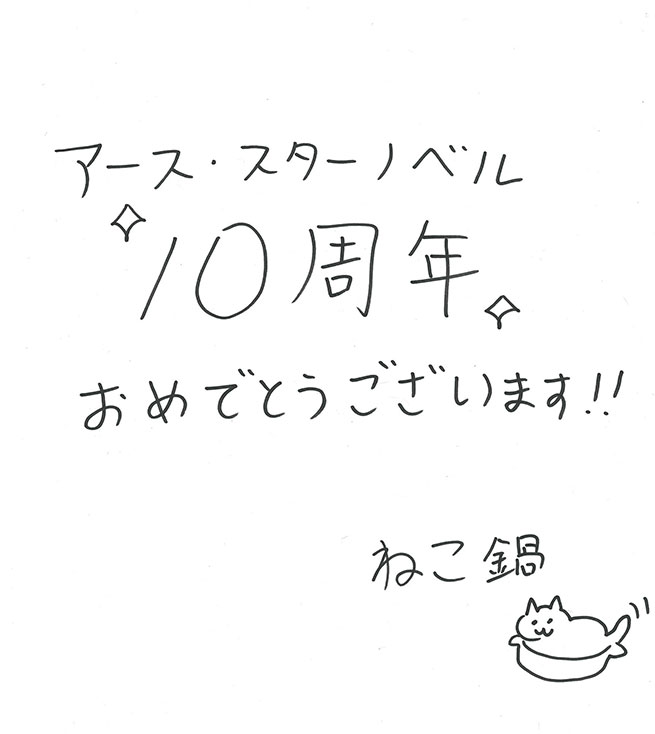 アース・スターノベル
10周年
おめでとうございます!!
ねこ鍋